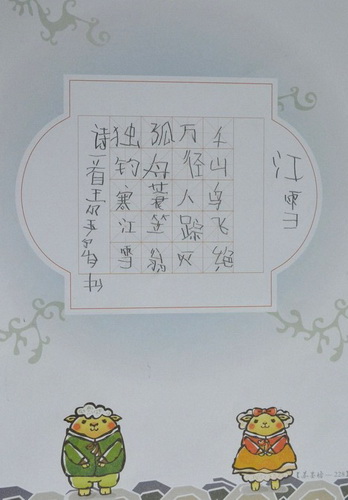 江雪
千山鸟飞绝
万径人踪灭
孤舟蓑笠翁
独钓寒江雪
诗一首